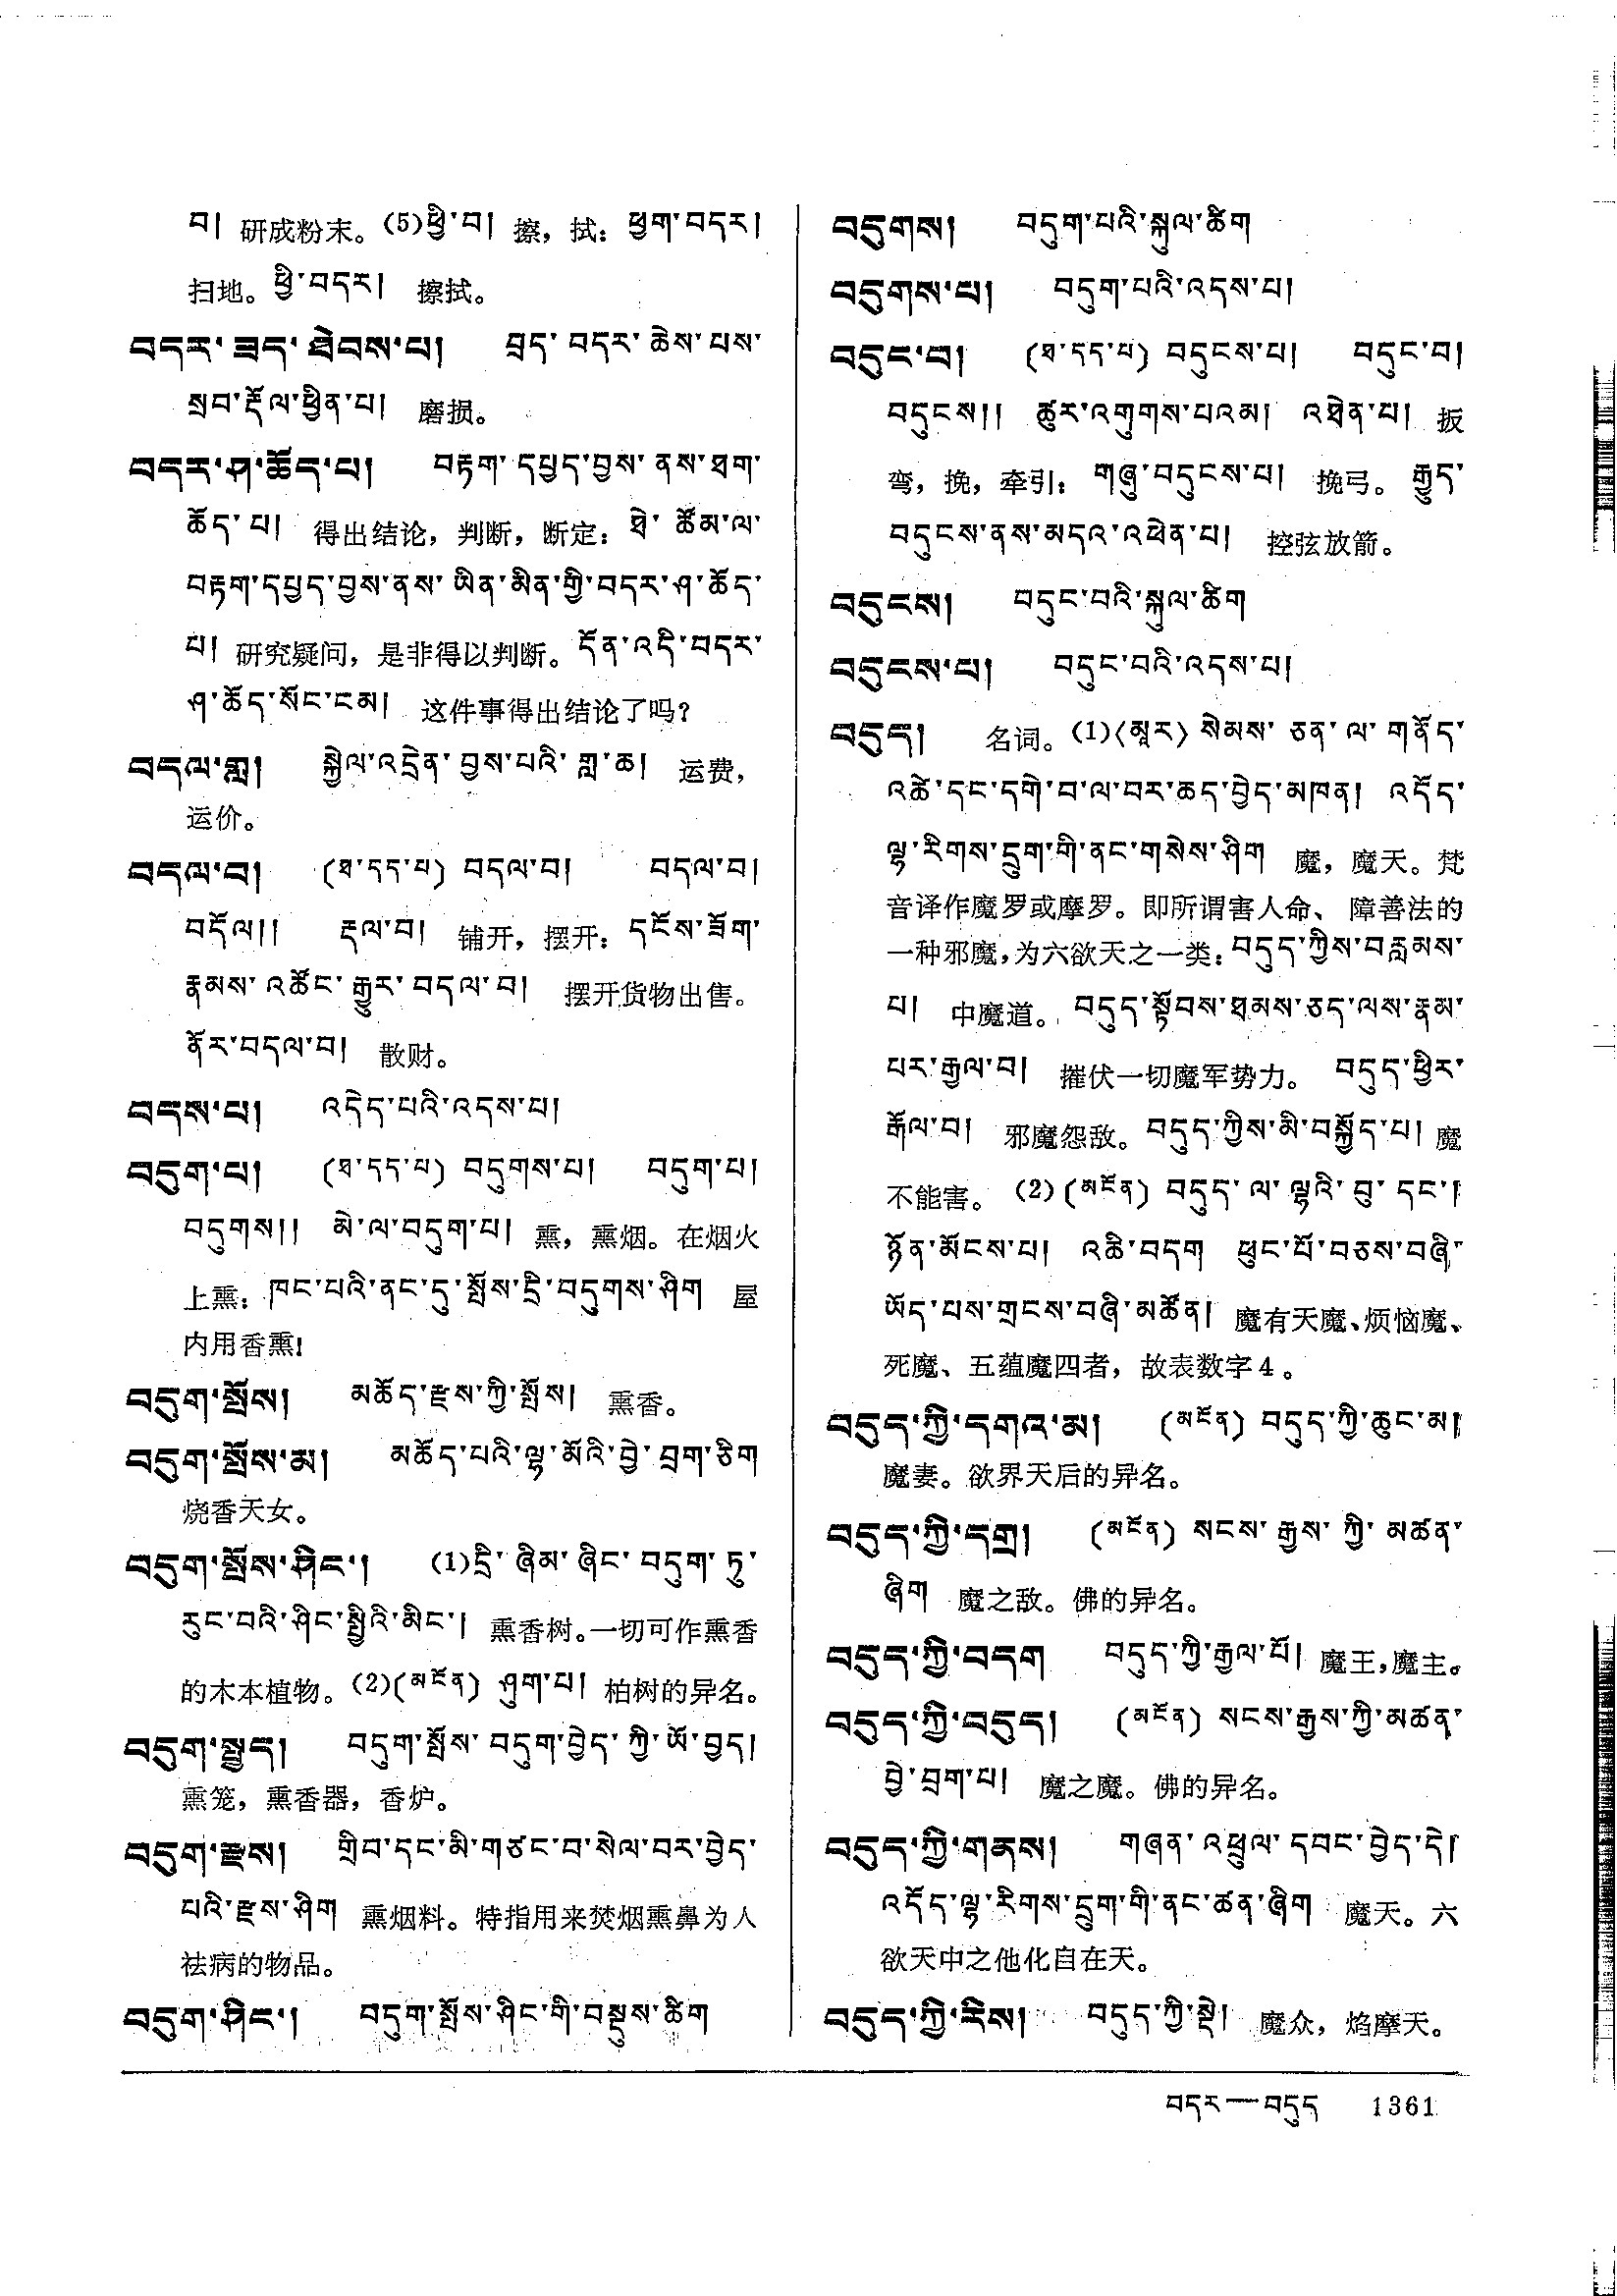 བ། 研成粉末。(5)ཕྱི་བ། 擦，拭：ཕྱག་བདར།
扫地。ཕྱི་བདར། 擦拭。
བདར་ཟད་ཐེབས་པ། བྲད་བདར་ཆེས་པས་
སྲབ་རྡོལ་ཕྱིན་པ། 磨损。
བདར་ཤ་ཆོད་པ། བརྟག་དཔྱད་བྱས་ནས་ཐག་
ཆོད་པ། 得出结论，判断，断定：ཐེ་ཚོམ་ལ་
བརྟག་དཔྱད་བྱས་ནས་ཡིན་མིན་གྱི་བདར་ཤ་ཆོད་
པ། 研究疑问，是非得以判断。དོན་འདི་བདར་
ཤ་ཆོད་སོང་ངམ། 这件事得出结论了吗?
བདལ་གླ། སྐྱེལ་འདྲེན་བྱས་པའི་གླ་ཆ། 运费，
运价。
བདལ་བ། (ཐ་དད་པ) བདལ་བ། བདལ་བ།
བདོལ།། རྡལ་བ། 铺开，摆开：དངོས་ཟོག་
རྣམས་འཚོང་རྒྱུར་བདལ་བ། 摆开货物出售。
ནོར་བདལ་བ། 散财。
བདས་པ། འདེད་པའི་འདས་པ།
བདུག་པ། (ཐ་དད་པ) བདུགས་པ། བདུག་པ།
བདུགས།། མེ་ལ་བདུག་པ། 熏，熏烟。在烟火
上熏：ཁང་པའི་ནང་དུ་སྤོས་དྲི་བདུགས་ཤིག 屋
内用香熏!
བདུག་སྤོས། མཆོད་རྫས་ཀྱི་སྤོས། 熏香。
བདུག་སྤོས་མ། མཆོད་པའི་ལྷ་མོའི་བྱེ་བྲག་ཅིག
烧香天女。
བདུག་སྤོས་ཤིང་། (1)དྲི་ཞིམ་ཞིང་བདུག་ཏུ་
རུང་བའི་ཤིང་སྤྱིའི་མིང་། 熏香树。一切可作熏香
的木本植物。(2)(མངོན) ཤུག་པ། 柏树的异名。
བདུག་སྤྱད། བདུག་སྤོས་བདུག་བྱེད་ཀྱི་ཡོ་བྱད།
熏笼，熏香器，香炉。
བདུག་རྫས། གྲིབ་དང་མི་གཙང་བ་སེལ་བར་བྱེད་
པའི་རྫས་ཤིག 熏烟料。特指用来焚烟熏鼻为人
祛病的物品。
བདུག་ཤིང་། བདུག་སྤོས་ཤིང་གི་བསྡུས་ཚིག
བདུགས། བདུག་པའི་སྐུལ་ཚིག
བདུགས་པ། བདུག་པའི་འདས་པ།
བདུང་བ། (ཐ་དད་པ) བདུངས་པ། བདུང་བ།
བདུངས།། ཚུར་འགུགས་པའམ། འཐེན་པ། 扳
弯，挽，牵引：གཞུ་བདུངས་པ། 挽弓。རྒྱུད་
བདུངས་ནས་མདའ་འཕེན་པ། 控弦放箭。
བདུངས། བདུང་བའི་སྐུལ་ཚིག
བདུངས་པ། བདུང་བའི་འདས་པ།
བདུད། 名词。(1)(མཱར) སེམས་ཅན་ལ་གནོད་
འཚེ་དང་དགེ་བ་ལ་བར་ཆད་བྱེད་མཁན། འདོད་
ལྷ་རིགས་དྲུག་གི་ནང་གསེས་ཤིག 魔，魔天。梵
音译作魔罗或摩罗。即所谓害人命、障善法的
一种邪魔，为六欲天之一类：བདུད་ཀྱིས་བརླམས་
པ། 中魔道。བདུད་སྟོབས་ཐམས་ཅད་ལས་རྣམ་
པར་རྒྱལ་བ། 摧伏一切魔军势力。བདུད་ཕྱིར་
རྒོལ་བ། 邪魔怨敌。བདུད་ཀྱིས་མི་བསྐྱོད་པ། 魔
不能害。(2)(མངོན) བདུད་ལ་ལྷའི་བུ་དང་།
ཉོན་མོངས་པ། འཆི་བདག ཕུང་པོ་བཅས་བཞི་
ཡོད་པས་གྲངས་བཞི་མཚོན། 魔有天魔、烦恼魔、
死魔、五蕴魔四者，故表数字4。
བདུད་ཀྱི་དགའ་མ། (མངོན) བདུད་ཀྱི་ཆུང་མ།
魔妻。欲界天后的异名。
བདུད་ཀྱི་དགྲ། (མངོན) སངས་རྒྱས་ཀྱི་མཚན་
ཞིག 魔之敌。佛的异名。
བདུད་ཀྱི་བདག བདུད་ཀྱི་རྒྱལ་པོ། 魔王，魔主。
བདུད་ཀྱི་བདུད། (མངོན) སངས་རྒྱས་ཀྱི་མཚན་
བྱེ་བྲག་པ། 魔之魔。佛的异名。
བདུད་ཀྱི་གནས། གཞན་འཕྲུལ་དབང་བྱེད་དེ།
འདོད་ལྷ་རིགས་དྲུག་གི་ནང་ཚན་ཞིག 魔天。六
欲天中之他化自在天。
བདུད་ཀྱི་རིས། བདུད་ཀྱི་སྡེ། 魔众，焰摩天。
བདར—བདུད 1361